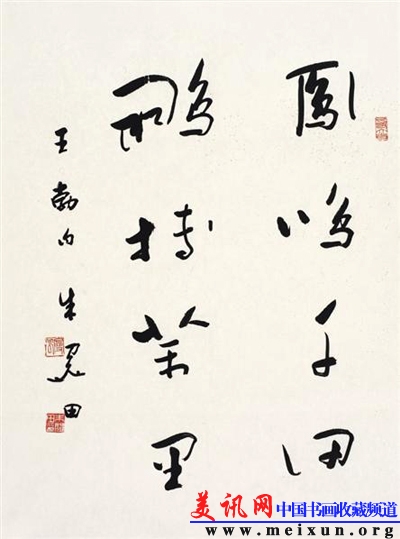 鳳鳴千仞
鵬摶萬里
王勃句 朱關田
美讯网 中国书画收藏频道
www.meixun.org